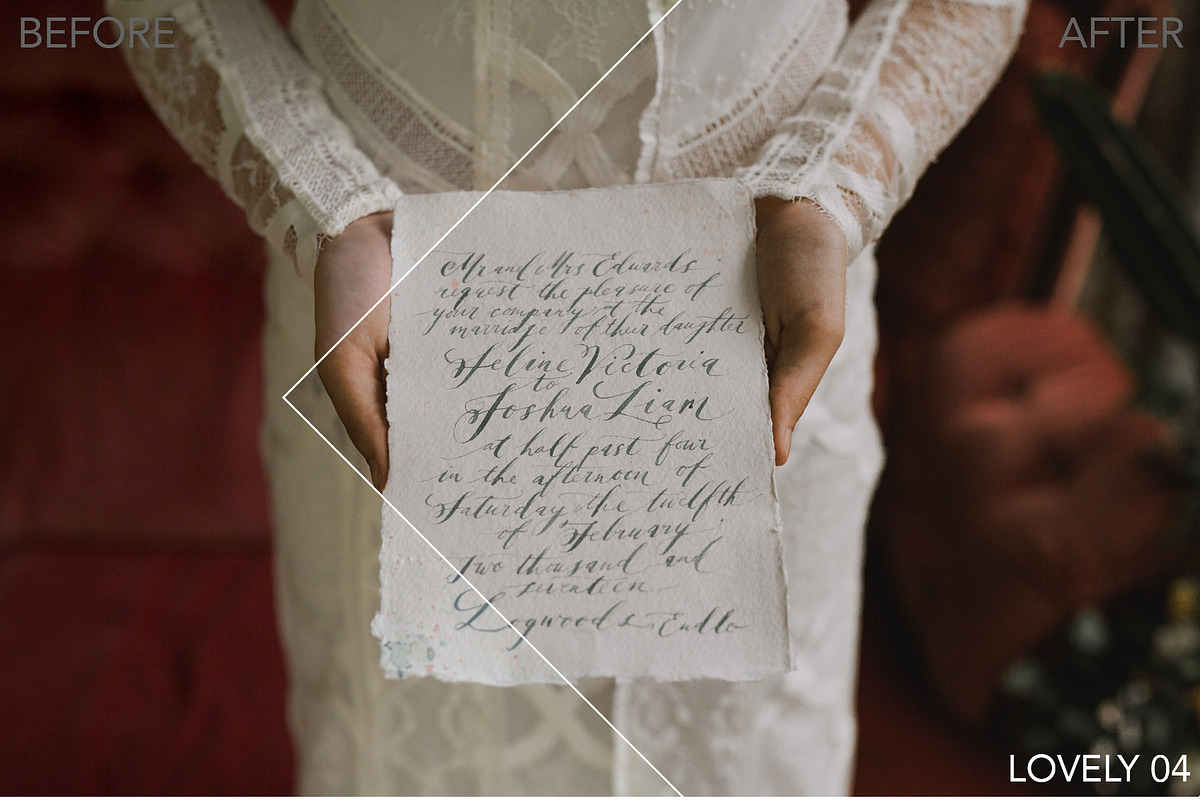 BEFORE
AFTER
Mr and Mrs Edwards
request the pleasure of
your company at the
marriage of their daughter
Feline Victoria
to
Joshua Liam
at half past four
in the afternoon of
Saturday the twelfth
of February
Two thousand and
seventeen
Logwoods
LOVELY 04